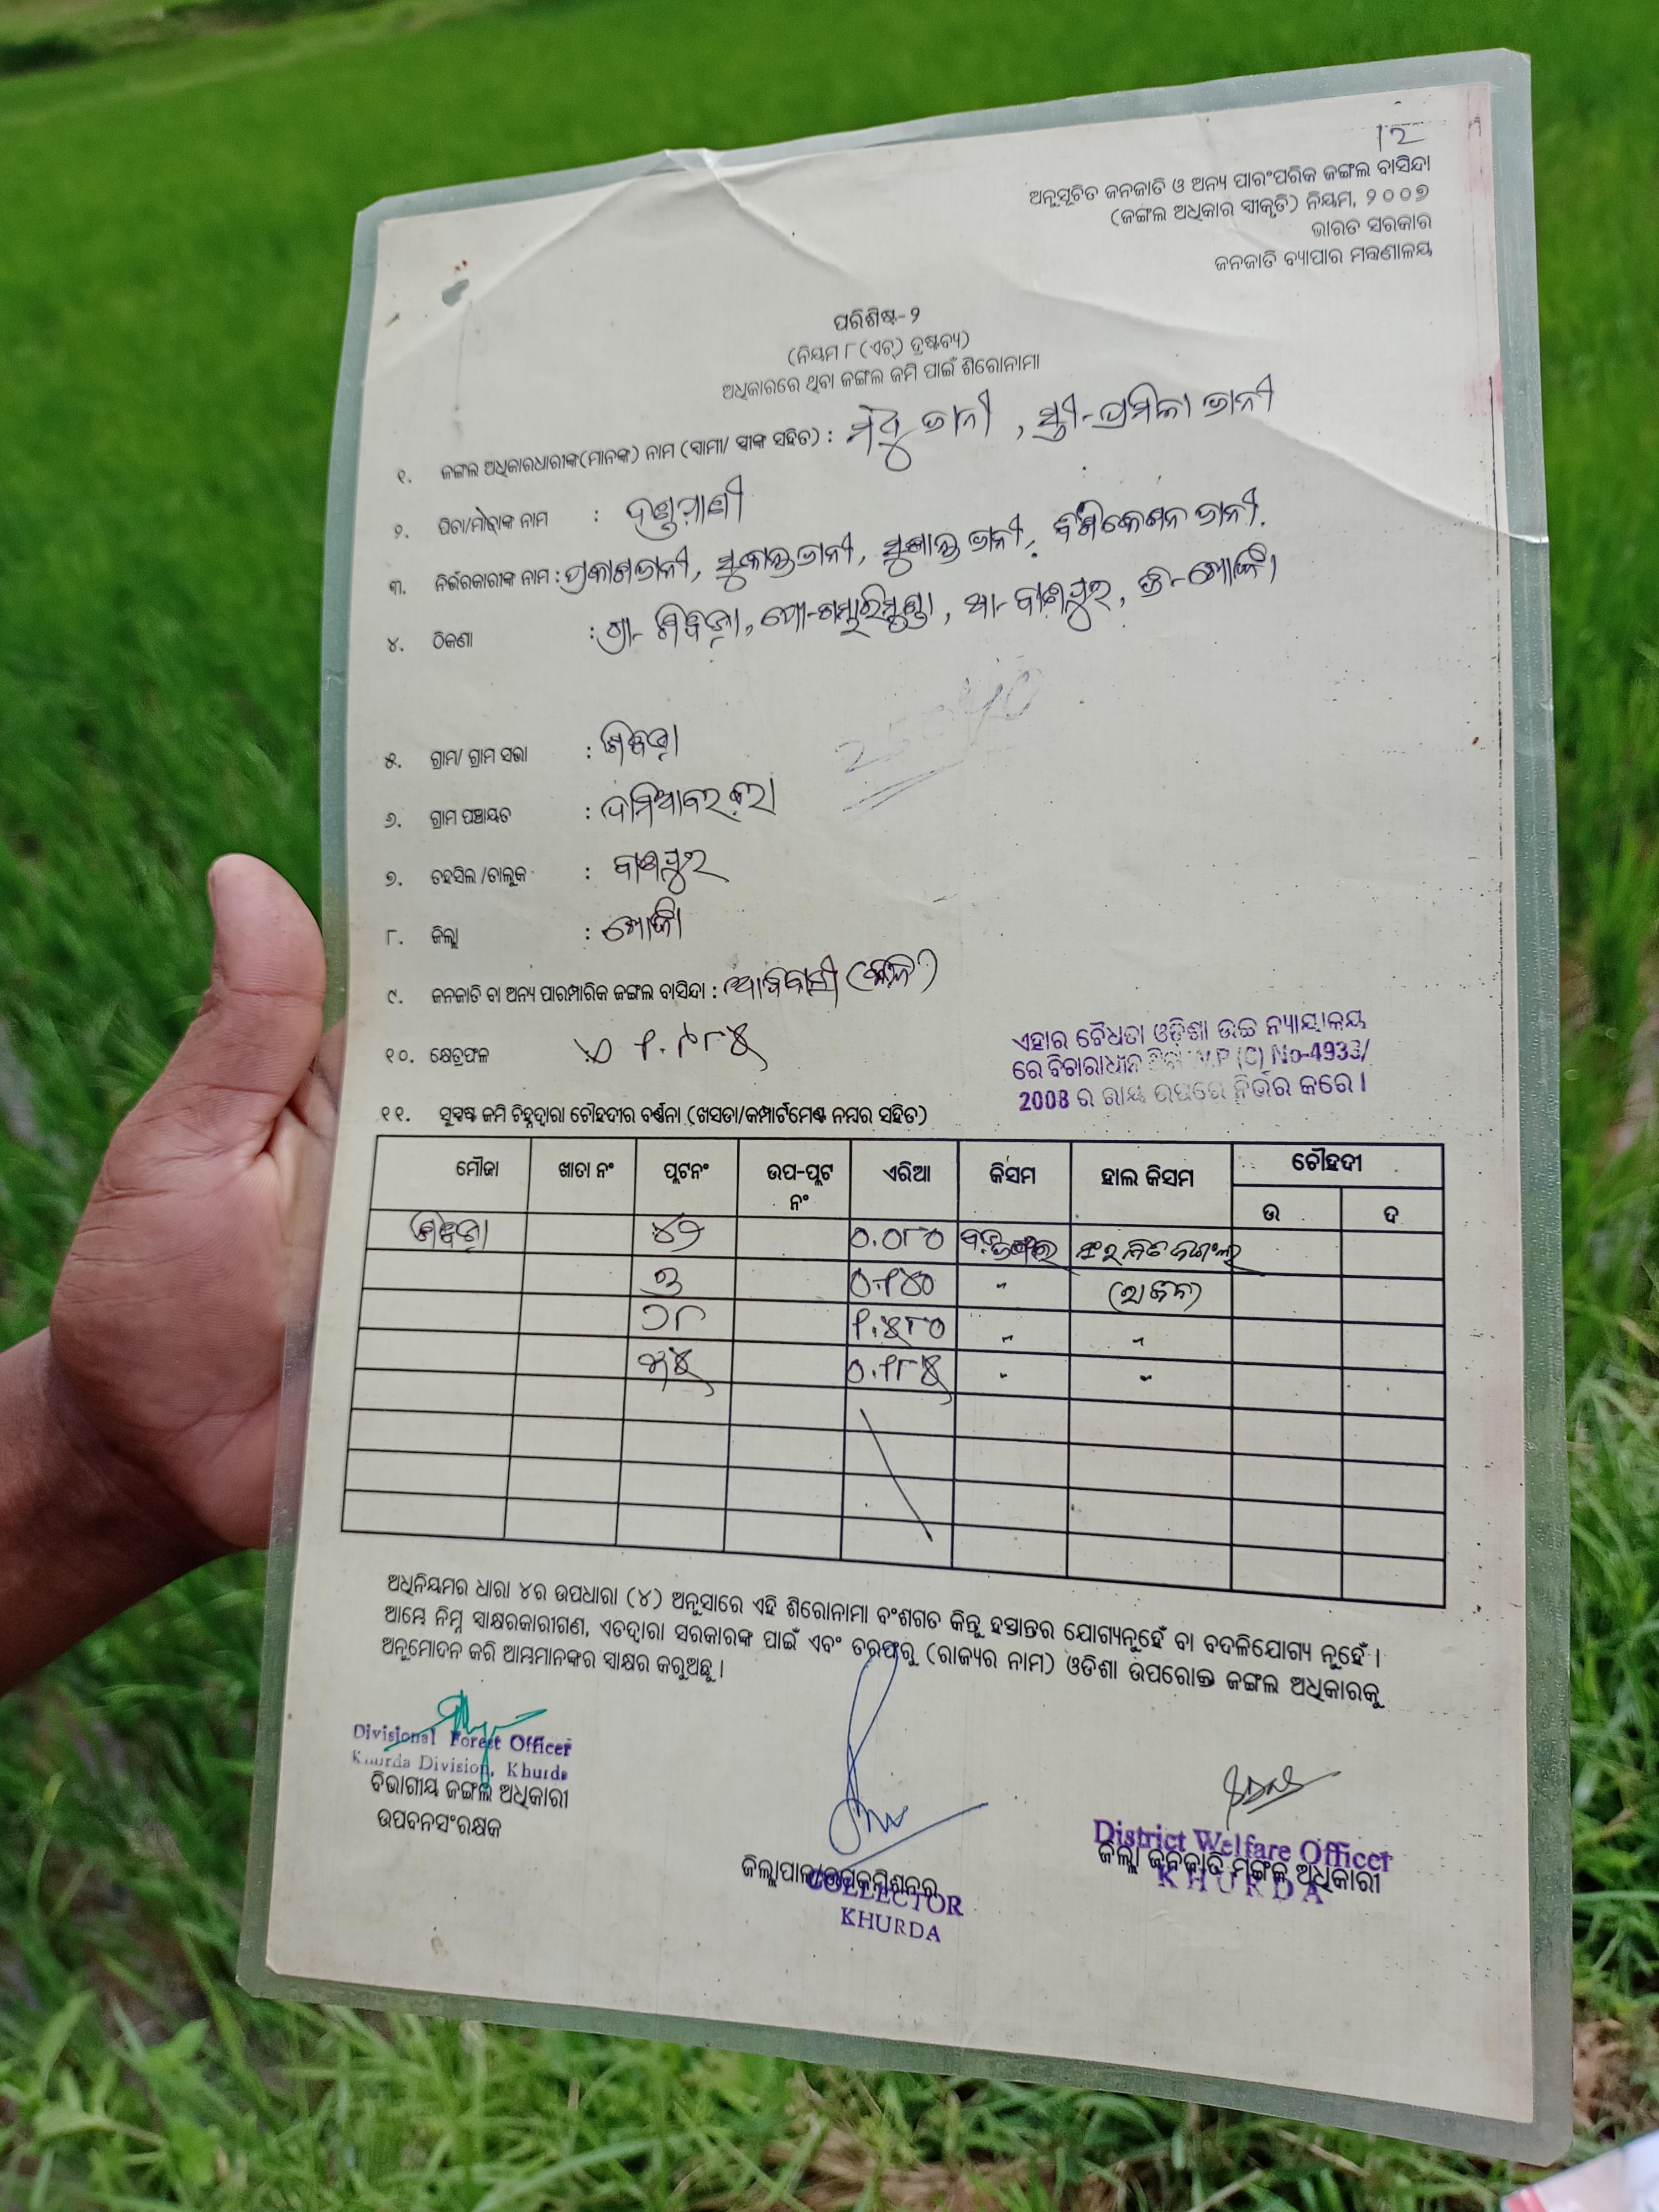 12
ଅନୁସୂଚିତ ଜନଜାତି ଓ ଅନ୍ୟ ପାରଂପରିକ ଜଙ୍ଗଲ ବାସିନ୍ଦା
(ଜଙ୍ଗଲ ଅଧିକାର ସ୍ୱୀକୃତି) ନିୟମ, ୨୦୦୭
ଭାରତ ସରକାର
ଜନଜାତି ବ୍ୟାପାର ମନ୍ତ୍ରଣାଳୟ
ପରିଶିଷ୍ଟ-୨
(ନିୟମ ୮ (ଏଚ୍) ଦ୍ରଷ୍ଟବ୍ୟ)
ଅଧିକାରରେ ଥିବା ଜଙ୍ଗଲ ଜମି ପାଇଁ ଶିରୋନାମା
୧. ଜଙ୍ଗଲ ଅଧିକାରଧାରୀଙ୍କ(ମାନଙ୍କ) ନାମ (ସ୍ୱାମୀ/ ସ୍ତ୍ରୀଙ୍କ ସହିତ) : ଜାନୀ, ସ୍ତ୍ରୀ-ପ୍ରମିଳା ଜାନୀ
୨. ପିତା/ମାତାଙ୍କ ନାମ :
୩. ନିର୍ଭରକାରୀଙ୍କ ନାମ : ପ୍ରକାଶ ଜାନୀ, ସୁକାନ୍ତ ଜାନୀ, ସୁଶାନ୍ତ ଜାନୀ, ଜାନୀ.
୪. ଠିକଣା : ଗ୍ରା- ପୋ- ଥା- ବାଣପୁର, ଜି- ଖୋର୍ଦ୍ଧା
୫. ଗ୍ରାମ/ ଗ୍ରାମ ସଭା :
୬. ଗ୍ରାମ ପଞ୍ଚାୟତ :
୭. ତହସିଲ /ତାଲୁକ : ବାଣପୁର
୮. ଜିଲ୍ଲା : ଖୋର୍ଦ୍ଧା
୯. ଜନଜାତି ବା ଅନ୍ୟ ପାରମ୍ପାରିକ ଜଙ୍ଗଲ ବାସିନ୍ଦା : ଆଦିବାସୀ
୧୦. କ୍ଷେତ୍ରଫଳ ୧.୯୮୫
ଏହାର ବୈଧତା ଓଡ଼ିଶା ଉଚ୍ଚ ନ୍ୟାୟାଳୟ
ରେ ବିଚାରାଧୀନ W.P (C) No-4933/
2008 ର ରାୟ ଉପରେ ନିର୍ଭର କରେ ।
୧୧. ସୁସ୍ପଷ୍ଟ ଜମି ଚିହ୍ନଦ୍ୱାରା ଚୌହଦୀର ବର୍ଣ୍ଣନା (ଖସଡା/କମ୍ପାର୍ଟମେଣ୍ଟ ନମ୍ବର ସହିତ)
ମୌଜା ଖାତା ନଂ ପ୍ଲଟନଂ ଉପ-ପ୍ଲଟ ନଂ ଏରିଆ କିସମ ହାଲ କିସମ ଚୌହଦୀ
ଉ ଦ
୪୬ ୦.୦୮୦
୩ ୦.୧୪୦ "
୨୮ ୧.୫୮୦ " "
୩୫ ୦.୧୮୫ " "
ଅଧିନିୟମର ଧାରା ୪ର ଉପଧାରା (୪) ଅନୁସାରେ ଏହି ଶିରୋନାମା ବଂଶଗତ କିନ୍ତୁ ହସ୍ତାନ୍ତର ଯୋଗ୍ୟନୁହେଁ ବା ବଦଳିଯୋଗ୍ୟ ନୁହେଁ ।
ଆମ୍ଭେ ନିମ୍ନ ସ୍ୱାକ୍ଷରକାରୀଗଣ, ଏତଦ୍ୱାରା ସରକାରଙ୍କ ପାଇଁ ଏବଂ ତରଫରୁ (ରାଜ୍ୟର ନାମ) ଓଡିଶା ଉପରୋକ୍ତ ଜଙ୍ଗଲ ଅଧିକାରକୁ
ଅନୁମୋଦନ କରି ଆମ୍ଭମାନଙ୍କର ସ୍ୱାକ୍ଷର କରୁଅଛୁ ।
Divisional Forest Officer
Khurda Division, Khurda
ବିଭାଗୀୟ ଜଙ୍ଗଲ ଅଧିକାରୀ
ଉପବନସଂରକ୍ଷକ
ଜିଲ୍ଲାପାଳ/ଉପକମିଶନର
COLLECTOR
KHURDA
District Welfare Officer
ଜିଲ୍ଲା ଜନଜାତି ମଙ୍ଗଳ ଅଧିକାରୀ
KHURDA